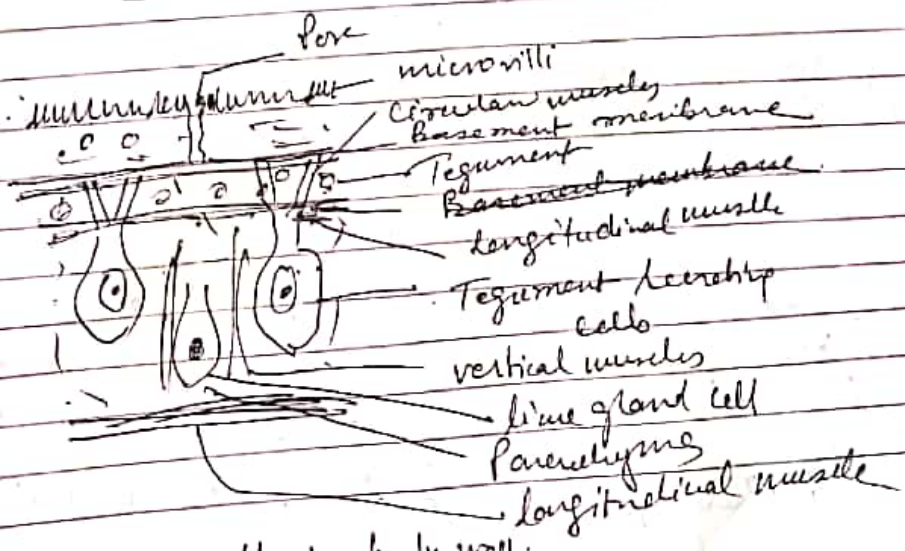 Pore
microvilli
Circular muscles
Basement membrane
Tegument
Basement membrane
longitudinal muscle
Tegument secreting
cells
vertical muscles
lime gland cell
Parenchyma
longitudinal muscle
body wall.